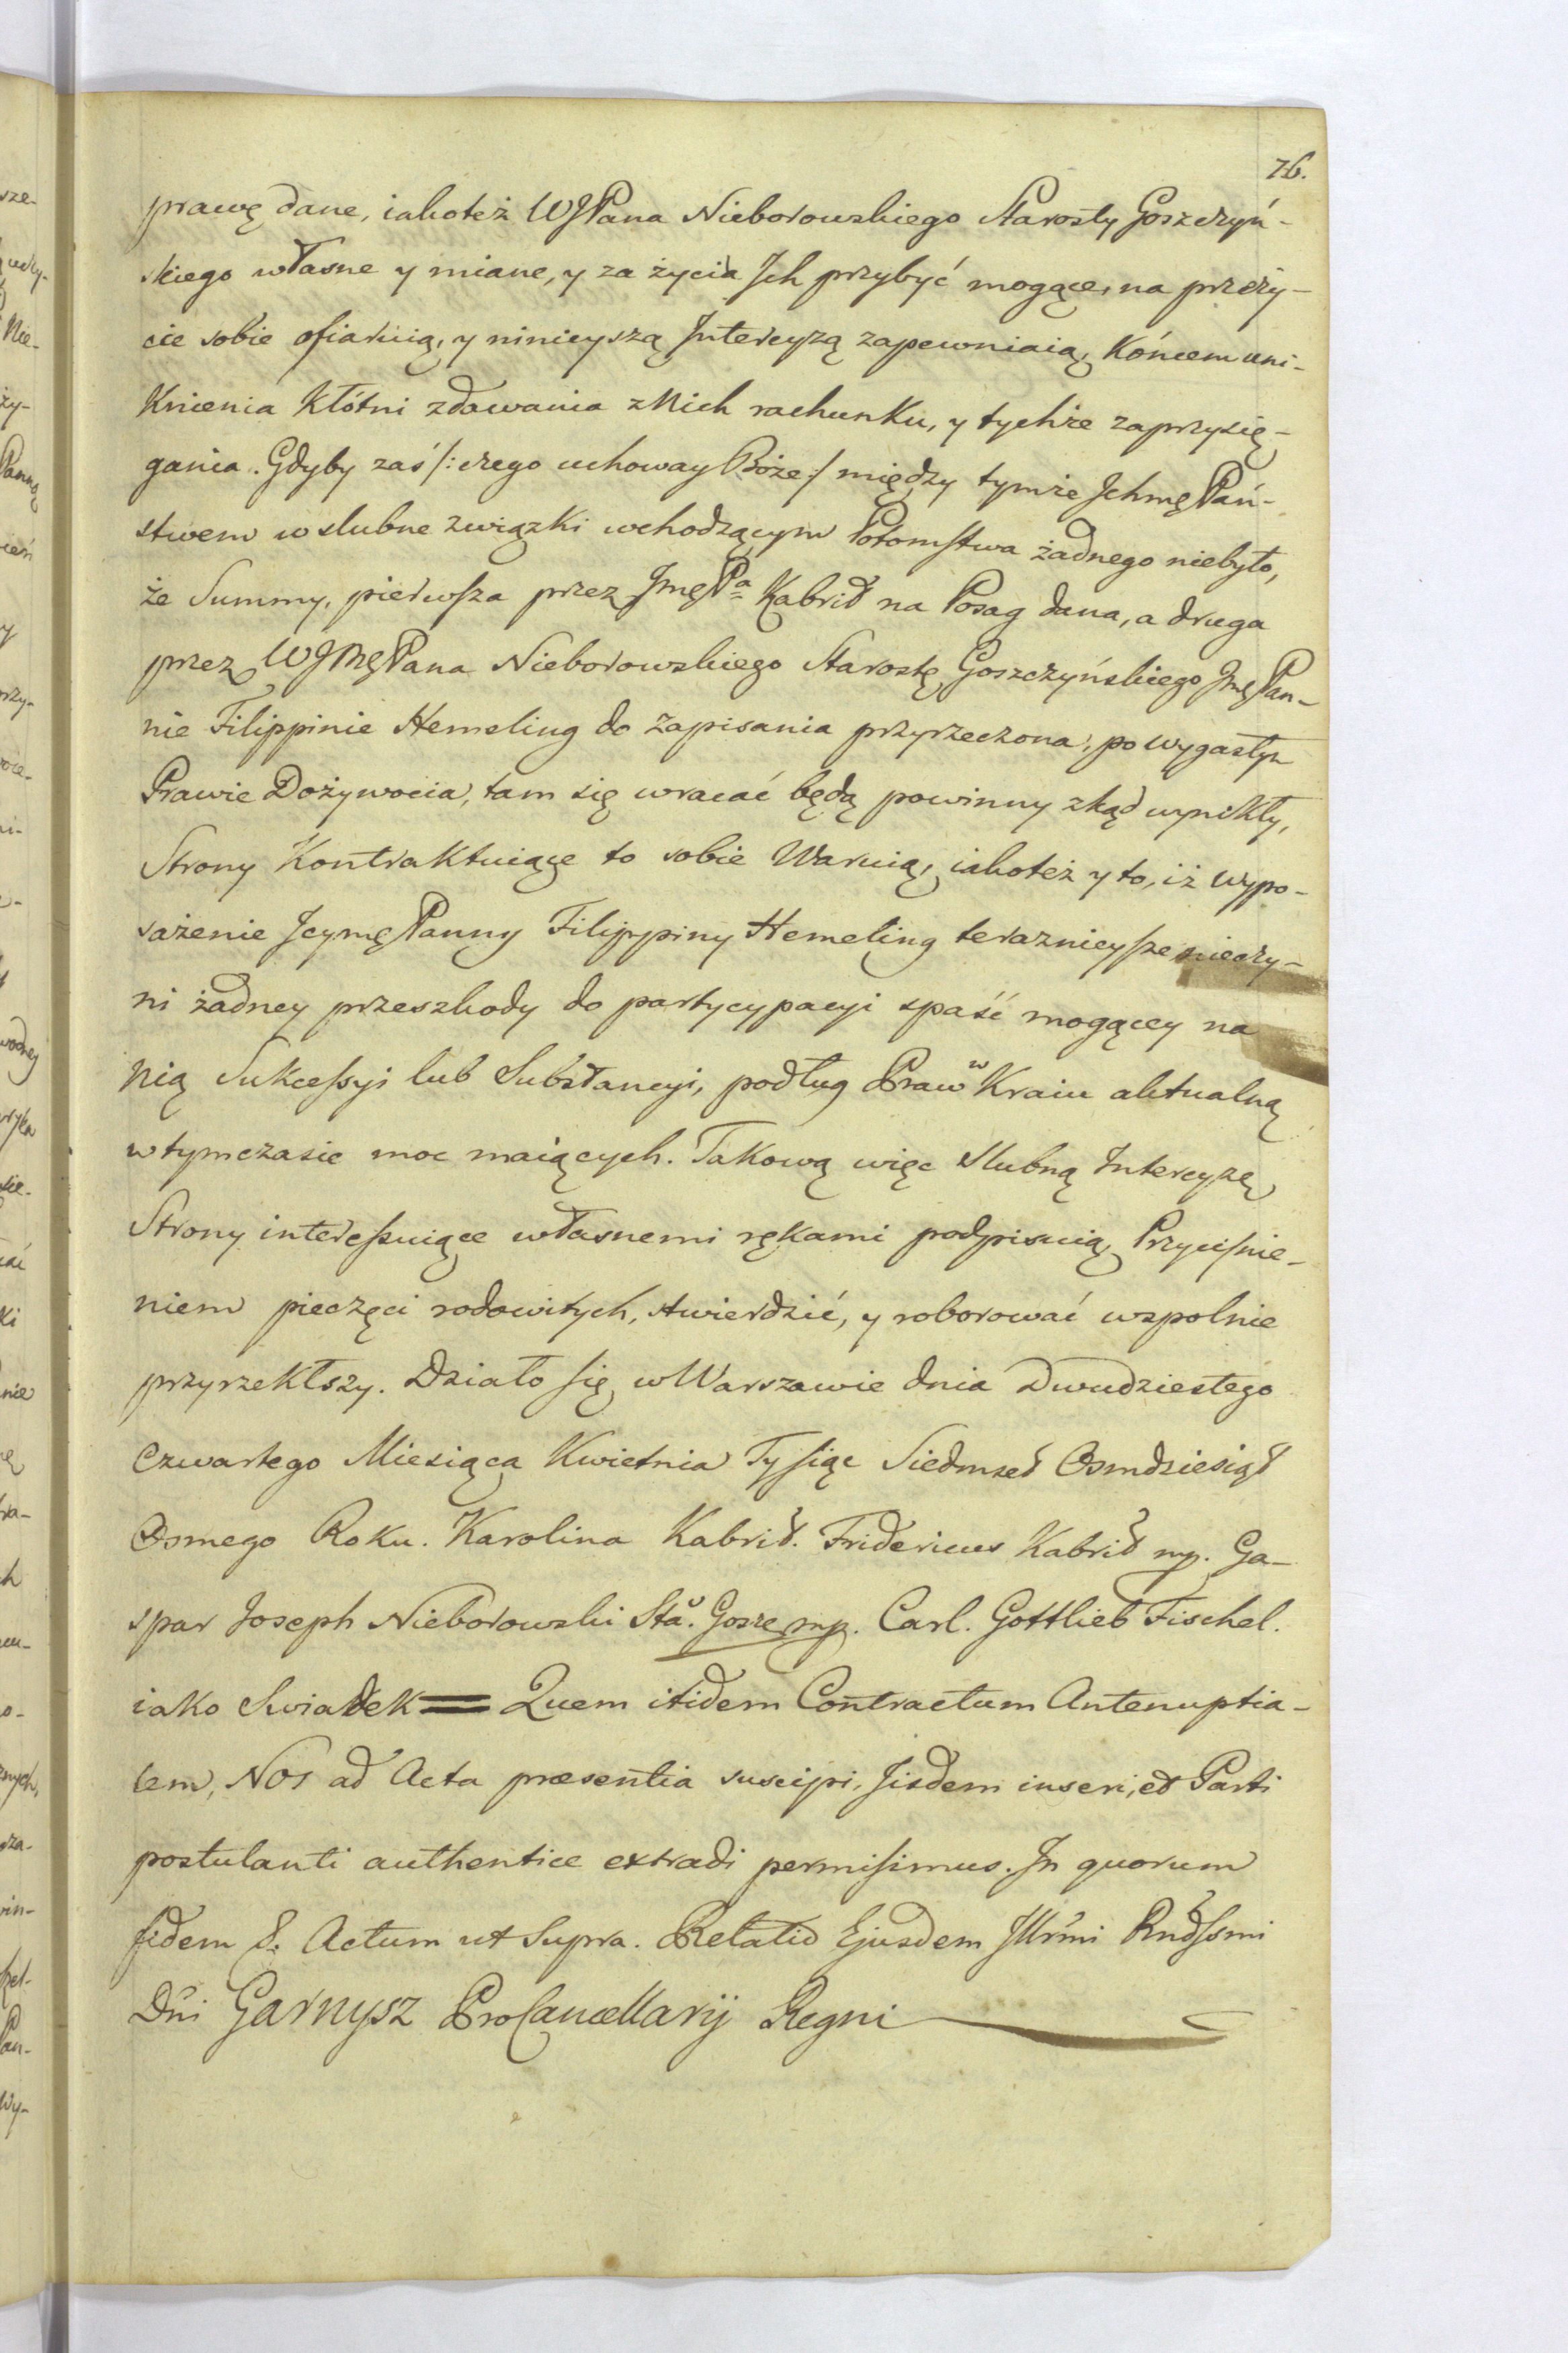 76.
prawę dane, iakoteż WJPana Nieborowskiego Starosty Goszczyń-
skiego własne y miane, y za życia Jch przybyć mogące, na przeży-
cie sobie ofiaruią, y ninieyszą Jntercyzą zapewniaią, Końcem uni-
knienia Kłótni zdawania z Nich rachunku, y tychże zaprzysię-
gania. Gdyby zaś /: czego uchoway Boże :/ między tymże Jchmę Pań-
stwem w slubne związki wchodzącym Potomstwa żadnego niebyło,
że Summy, pierwsza przez JmęPa Kabrit na Posag dana, a druga
przez WJMęPana Nieborowskiego Starostę Goszczyńskiego JmęPan-
nie Filippinie Hemeling do zapisania przyrzeczona, po wygasłym
Prawie Dożywocia, tam się wracać będą powinny zkąd wynikły,
Strony Kontraktuiące to sobie Waruią, iakoteż y to, iż wypo-
sażenie JeymęPanny Filippiny Hemeling teraznieysze nieczy-
ni żadney przeszkody do partycypacyi spaść mogącey na
nią Sukcessyi lub Substancyi, podług Praw w Kraiu aktualną
w tymczasie moc maiących. Takową więc Slubną Jntercyzę
Strony interessuiące własnemi rękami podpisuią, Przyciśnie-
niem pieczęci rodowitych, stwierdzić, y roborować wspolnie
przyrzekłszy. Działo się w Warszawie dnia Dwudziestego
Czwartego Miesiąca Kwietnia Tysiąc Siedmset Osmdziesiąt
Osmego Roku. Karolina Kabrit. Fridericus Kabrit mp. Ga-
spar Joseph Nieborowski Sta. Goszc mp. Carl. Gottlieb Fischel.
iako Swiadek = Quem itidem Contractum Antenuptia-
lem, Nos ad Acta præsentia suscipi, Jisdem inseri, et Parti
postulanti authentice extradi permisimus. Jn quorum
fidem &. Actum ut Supra. Relatio Ejusdem Jllrmi Rndssmi
Dni Garnysz ProCancellarij Regni